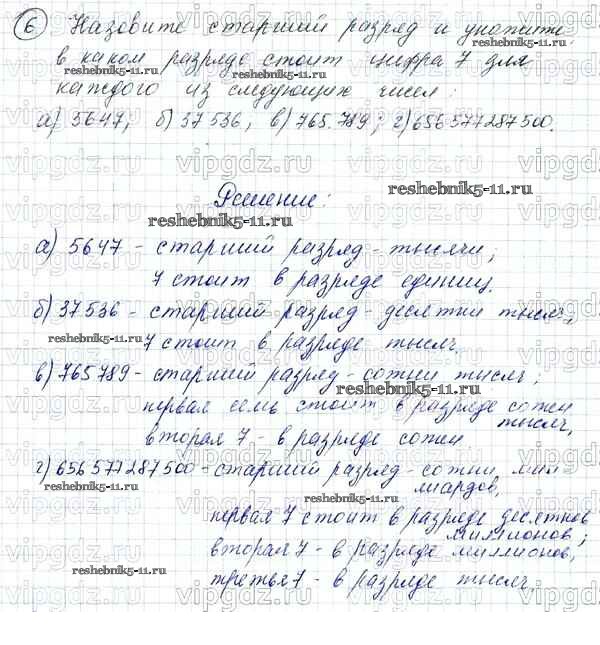 6 Назовите старший разряд и укажите
в каком разряде стоит цифра 7 для
каждого из следующих чисел:
а) 5647, б) 37 536, в) 765 789; г) 656 577 287 500.
Решение:
а) 5647 - старший разряд - тысячи;
7 стоит в разряде единиц.
б) 37 536 - старший разряд - десятки тысяч,
7 стоит в разряде тысяч.
в) 765 789 - старший разряд - сотни тысяч;
первая семь стоит в разряде сотен
тысяч,
вторая 7 - в разряде сотен.
г) 656 577 287 500 - старший разряд - сотни мил-
лиардов,
первая 7 стоит в разряде десятков
миллионов;
вторая 7 - в разряде миллионов,
третья 7 - в разряде тысяч.
reshebnik5-11.ru
reshebnik5-11.ru
reshebnik5-11.ru
reshebnik5-11.ru
reshebnik5-11.ru
reshebnik5-11.ru
reshebnik5-11.ru
reshebnik5-11.ru
reshebnik5-11.ru
vipgdz.ru